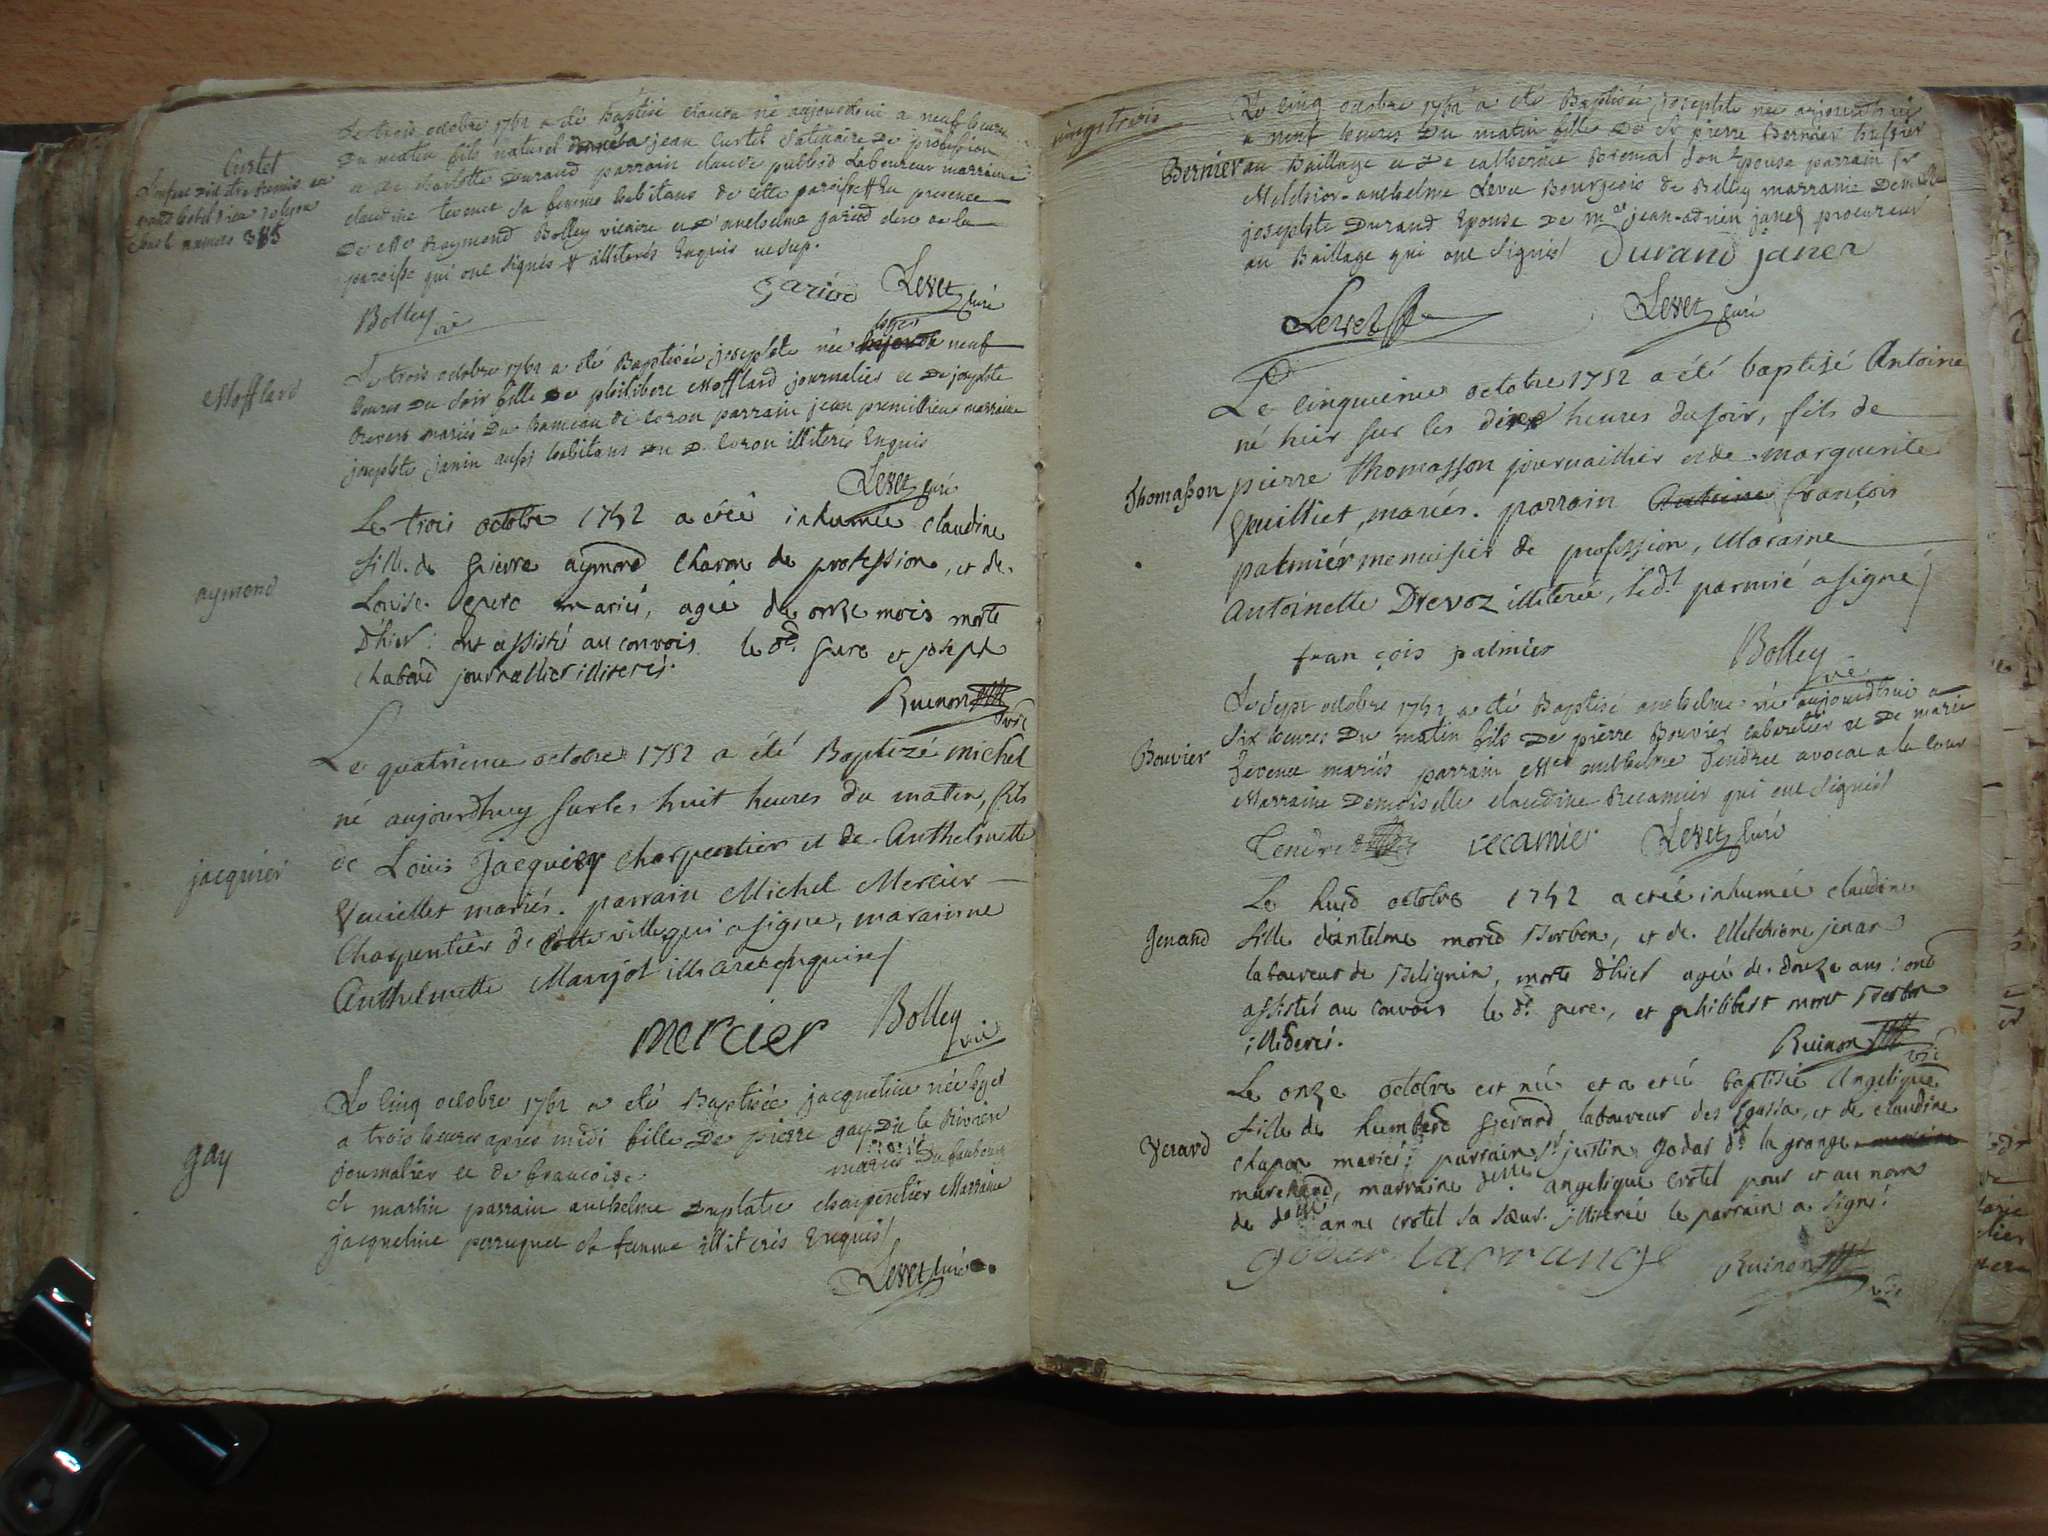 Custel
Le trois octobre 1752 a été Baptisé claude né aujourdhui a neuf heures
Du matin fils naturel donné a jean Custel Satinaire De profession
a De charlotte Durand parrain claude Laboureur marraine
claudine tevenet sa femme habitans de cette paroisse En presence
De Mre Raymond Bolley vicaire et D'anthelme gariod clerc de la
paroisse qui ont signés illiterés Enquis
Bolley vic gariod Levet curé
Mofflard
Le trois octobre 1752 a été Baptisée josephte née hyer a neuf
heures Du soir fille De philibert Mofflard journalier et De josephte
mariés Du hameau de Coron parrain jean premillieu marraine
josephte janin aussi habitans Du D. Coron illiterés Enquis
Levet curé
aymond
Le trois octobre 1752 a étée inhumée claudine
fille de pierre aymond Charon de profession, et de
Louise mariés, agée de onze mois morte
D'hier: ont assistés au convois le d. pere et joseph
chaboud journallier illiterés.
Ruinon vic
jacquier
Le quatrieme octobre 1752 a été Baptizé Michel
né aujourdhuy sur les huit heures du matin, fils
de Louis Jacquier charpentier et de Anthelmette
Vuiellet mariés. parrain Michel Mercier
Charpentier de cette ville qui a signé, marainne
Anthelmette Marjot illiteree enquise
mercier Bolley vic
gay
Le cinq octobre 1752 a été Baptisée jacqueline née hyer
a trois heures apres midi fille De pierre gay Dit la Riviere
journalier et de francoise mariés Du faubourg
st martin parrain anthelme Duplatre charpentier Marraine
jacqueline perruquet sa femme illiterés Enquis
Levet curé
vingt trois
Le cinq octobre 1752 a été Baptisée josephte née aujourdhui
a neuf heures Du matin fille De Sr pierre Bernier huissier
Bernier au Baillage et De catherine son Epouse parrain Sr
Melchior-anthelme Levet Bourgeois de Belley marraine Demlle
josephte Durand Epouse De me jean-adrien janet procureur
au Baillage qui ont signés Durand janet
Levet Levet curé
Le cinquieme octobre 1752 a été baptisé Antoine
né hier sur les dix heures du soir, fils de
Thomasson pierre thomasson journaillier et de marguerite
Vuilliet, mariés. parrain Antoine françois
palmiér menuisier de profession, Maraine
Antoinette Drevoz illiterée, le dt parrain a signé
fran çois palmier Bolley vic
Le sept octobre 1752 a été Baptisé anthelme né aujourdhui a
six heures Du matin fils De pierre Bouvier cabaretier et De marie
Bouvier
tevenet mariés parrain Mre anthelme Tendret avocat a la cour
Marraine Demoiselle claudine Recamier qui ont signés
Tendret recamier Levet curé
Le huid octobre 1752 a étée inhumée claudine
Genand fille d'antelme mored Berben, et de Melchione jenand
laboureur de Belignin, morte d'hier agée de douze ans: ont
assistés au convois le dt pere, et philibert moret Berben
illiderés.
Ruinon vic
Le onze octobre est née et a etée baptisée Angelique
fille de humberd Gerard, laboureur des Ecassa, et de claudine
Verard
chapon mariés; parrain Sr justin godas dt la grange
marchand, marraine delle angelique crotel pour et au nom
de delle anne crotel sa sœur. illiterée le parrain a signé.
godar lagrange Ruinon vic